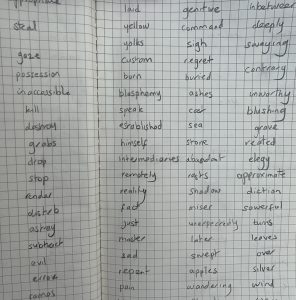 steal
gaze
possession
inaccessible
kill
destroy
grabs
drop
stop
render
disturb
astray
subtract
evil
error
laid
yellow
yolks
custom
born
blasphemy
speak
established
himself
intermediaries
remotely
reality
fact
just
master
sad
repent
pain
genitive
command
sigh
regret
buried
ashes
sea
stone
abundant
shadow
miser
unexpectedly
later
swept
apples
wandering
inbetween
deeply
swaying
contrary
unworthy
blushing
grave
elegy
approximate
diction
turns
leaves
over
silver
wind